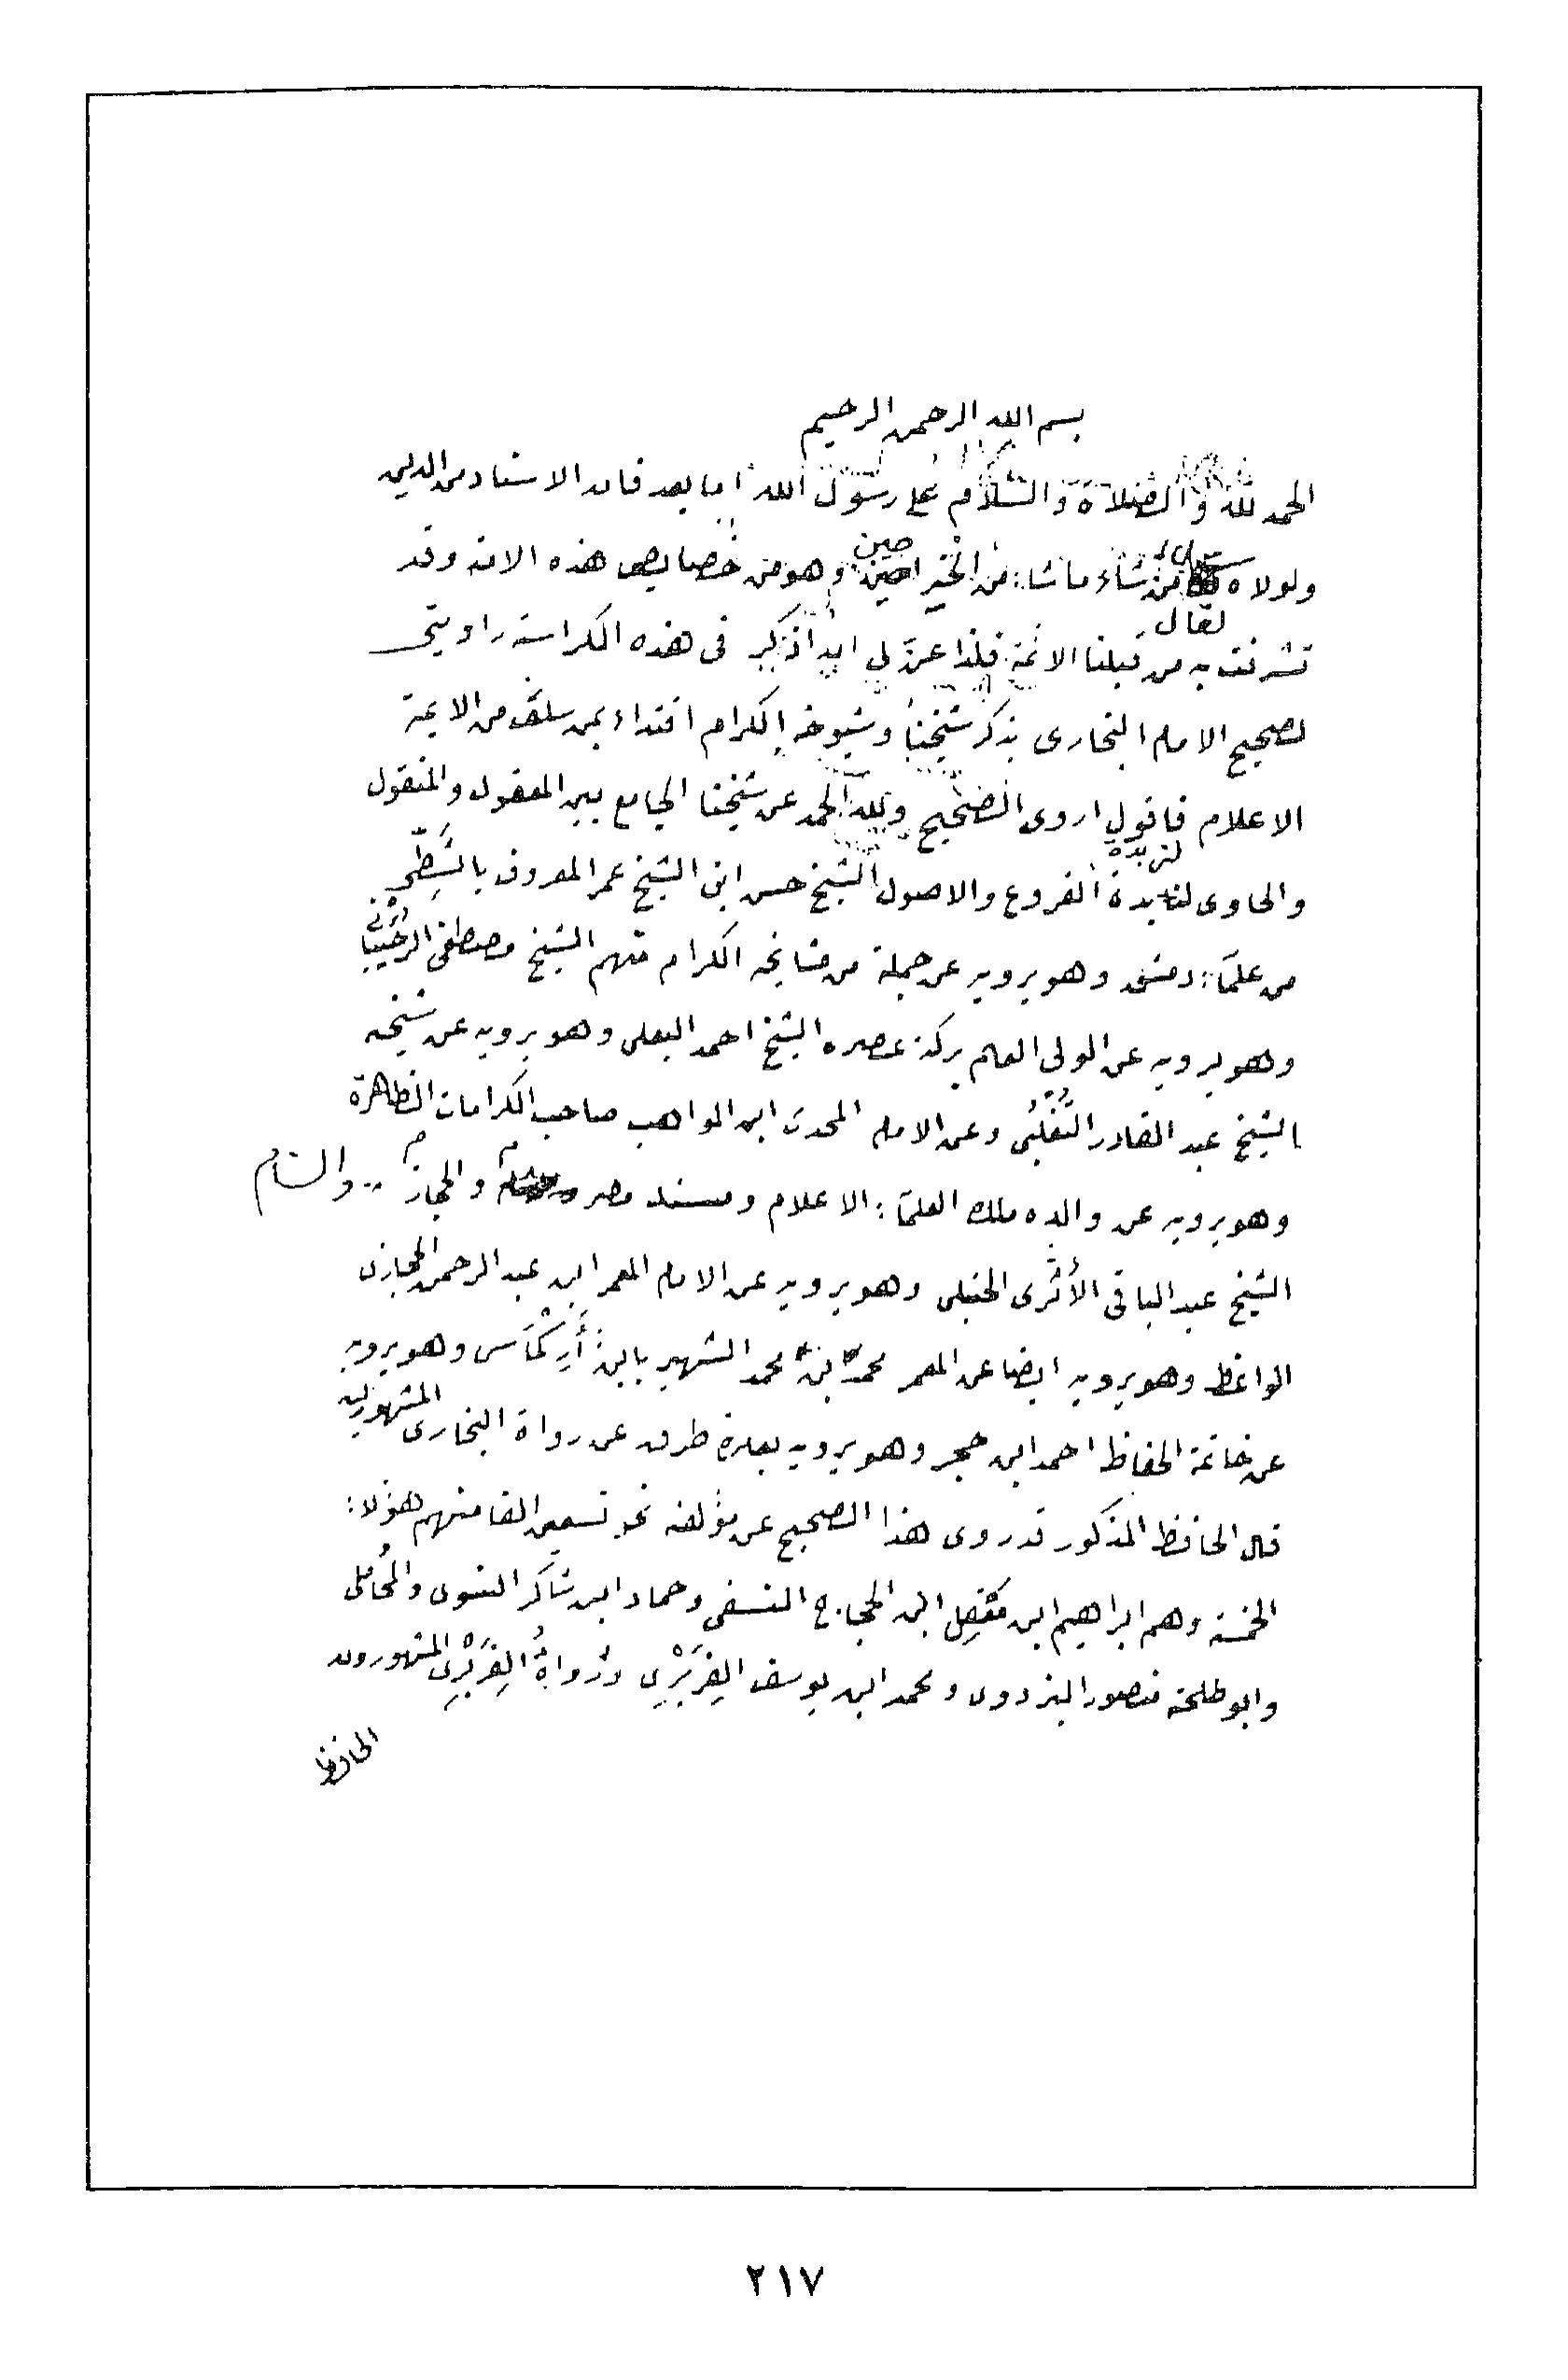 بسم الله الرحمن الرحيم
الحمد لله والصلاة والسلام على رسول الله اما بعد فان الاسناد من الدين
ولولاه لقال من شاء ما شاء من الخير حين وهو من خصايص هذه الامة وقد
لقال
تشرفت به من قبلنا الائمة فلذا عن لي ان اذكر فى هذه الكراسة راويتى
لصحيح الامام البخارى بذكر شيخنا وشيوخه الكرام اقتداء بمن سلف من الايمة
الاعلام فاقول اروى الصحيح ولله الحمد عن شيخنا الجامع بين المعقول والمنقول
لزبدة
والحاوى لزبدة الفروع والاصول الشيخ حسن ابن الشيخ عمر المعروف بالشَّطِّى
من علماء دمشق وهو يرويه عن جملة من مشايخه الكرام منهم الشيخ مصطفى الرحيبانى
وهو يرويه عن الولى العلم بركة عصره الشيخ احمد البعلى وهو يرويه عن شيخه
الشيخ عبد القادر التَّغْلُبى وعن الامام المحدث ابى المواهب صاحب الكرامات الظاهرة
وهو يرويه عن والده ملك العلماء الاعلام ومسند مصر والحجاز والشام
الشيخ عبد الباقى الأثرى الحنبلى وهو يرويه عن الامام المعمر ابن عبد الرحمن الحجازى
الواعظ وهو يرويه ايضا عن المعمر محمد بن محمد الشهير بابن أَرِكْمَاس وهو يرويه
عن خاتمة الحفاظ احمد ابن حجر وهو يرويه بعدة طرق عن رواة البخارى المشهورين
قال الحافظ المذكور قد روى هذا الصحيح عن مؤلفه نحو تسعين الفا منهم هؤلاء
الخمسة وهم ابراهيم ابن مَعْقِل ابن الحجاج النسفى وحماد ابن شاكر النسوى والمُحَاملى
وابو طلحة منصور البزدوى ومحمد ابن يوسف الفِرَبْرِى ورُواةُ الفِرَبْرِى المشهورون
الحافظ
٢١٧